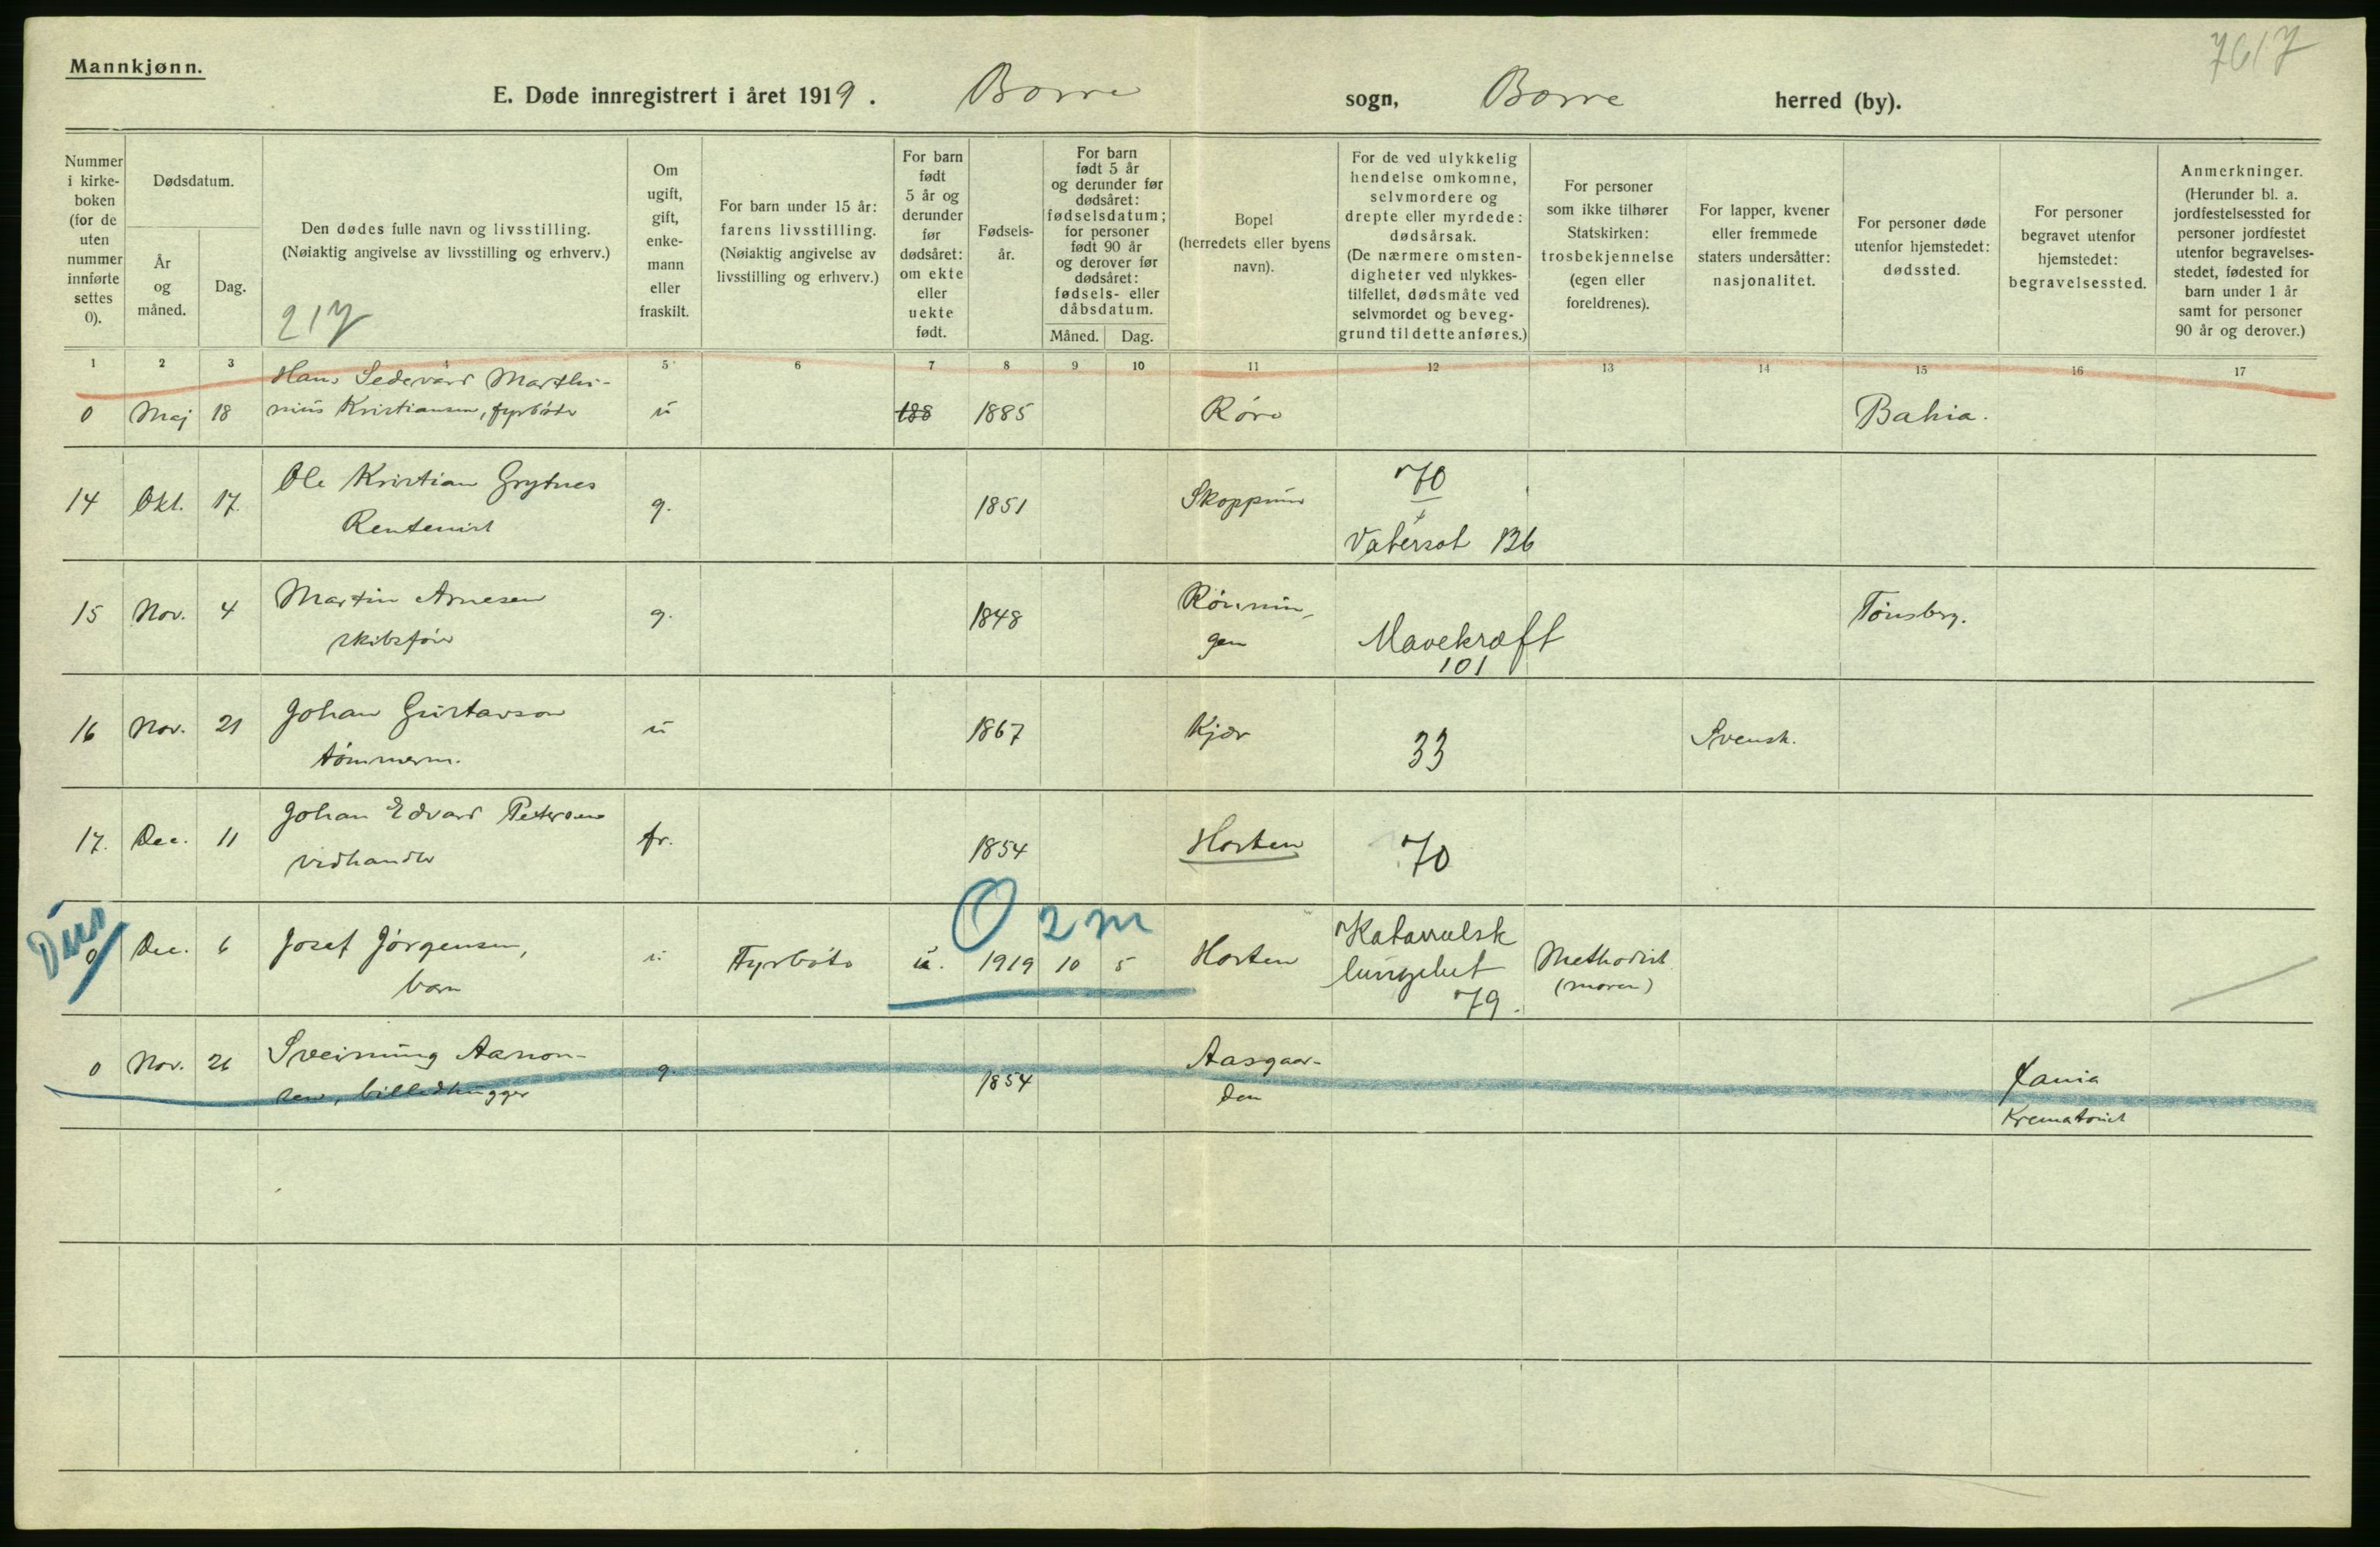 7617
Mannkjønn.
E. Døde innregistrert i året 1919. Borre sogn, Borre herred (by).
Nummer i kirke-boken (for de uten nummer innførte settes 0).
Dødsdatum.
År og måned.
Dag.
Den dødes fulle navn og livsstilling.
(Nøiaktig angivelse av livsstilling og erhverv.)
217
Om ugift, gift, enke-mann eller fraskilt.
For barn under 15 år: farens livsstilling.
(Nøiaktig angivelse av livsstilling og erhverv.)
For barn født 5 år og derunder før dødsåret: om ekte eller uekte født.
Fødsels-år.
For barn født 5 år og derunder før dødsåret: fødselsdatum; for personer født 90 år og derover før dødsåret: fødsels- eller dåbsdatum.
Måned.
Dag.
Bopel (herredets eller byens navn).
For de ved ulykkelig hendelse omkomne, selvmordere og drepte eller myrdede: dødsårsak.
(De nærmere omsten-digheter ved ulykkes-tilfellet, dødsmåte ved selvmordet og beveg-grund til dette anføres.)
For personer som ikke tilhører Statskirken: trosbekjennelse (egen eller foreldrenes).
For lapper, kvener eller fremmede staters undersåtter: nasjonalitet.
For personer døde utenfor hjemstedet: dødssted.
For personer begravet utenfor hjemstedet: begravelsessted.
Anmerkninger.
(Herunder bl. a. jordfestelsessted for personer jordfestet utenfor begravelses-stedet, fødested for barn under 1 år samt for personer 90 år og derover.)
1 2 3 4 5 6 7 8 9 10 11 12 13 14 15 16 17
Hans Sedevard Marthi-
0 Maj 18 nius Kristiansen, fyrbøter u 188 1885 Røre Bahia.
14 Okt. 17. Ole Kristian Grytnes g. 1851 Skoppum 70
Rentenist Vatersot 136
15 Nov. 4 Martin Arnesen g. 1848 Rønnin- Tønsberg.
skibsfør gen Mavekræft
101
16 Nov. 21 Johan Gustavson u 1867 Kjær 33 Svensk.
tømmerm.
17. Dec. 11 Johan Edvard Petersen fr. 1854 Horten 70
vedhandler
0 2 m
0 Dec. 6 Josef Jørgensen, u Fyrbøter u. 1919 10 5 Horten Katarralsk Methodist
barn lungebet (moren)
79.
0 Nov. 26 Sveinung Aanon- g. 1854 Aasgaar-
sen, billedhugger den
Krematoriet